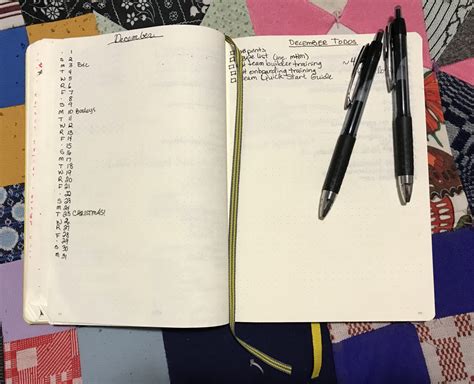 December
· 1
S 2
M 3
T 4
W 5
R 6
F 7
· 8
S 9
M 10
T 11
W 12
R 13
F 14
· 15
S 16
M 17
T 18
W 19
R 20
F 21
· 22
S 23
M 24
T 25 CHRISTMAS!
W 26
R 27
F 28
· 29
S 30
M 31
DECEMBER TODOS
pants
list
team builder training
onboarding training
Quick Start Guide